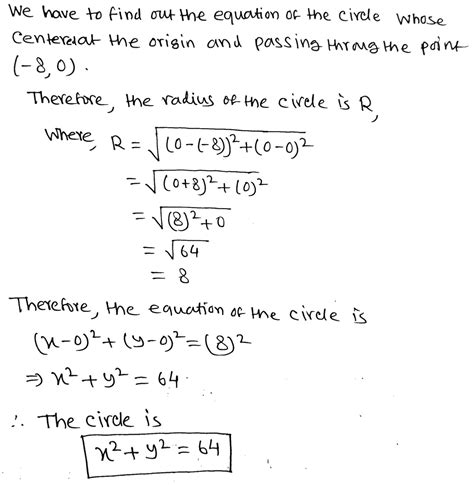 We have to find out the equation of the circle whose
Centered at the origin and passing throug the point
(-8,0).
Therefore, the radius of the circle is R,
where, R = √(0-(-8))²+(0-0)²
= √(0+8)²+(0)²
= √(8)²+0
= √64
= 8
Therefore, the equation of the circle is
(x-0)²+(y-0)²=(8)²
⇒ x²+y² = 64
∴ The circle is
x²+y² = 64